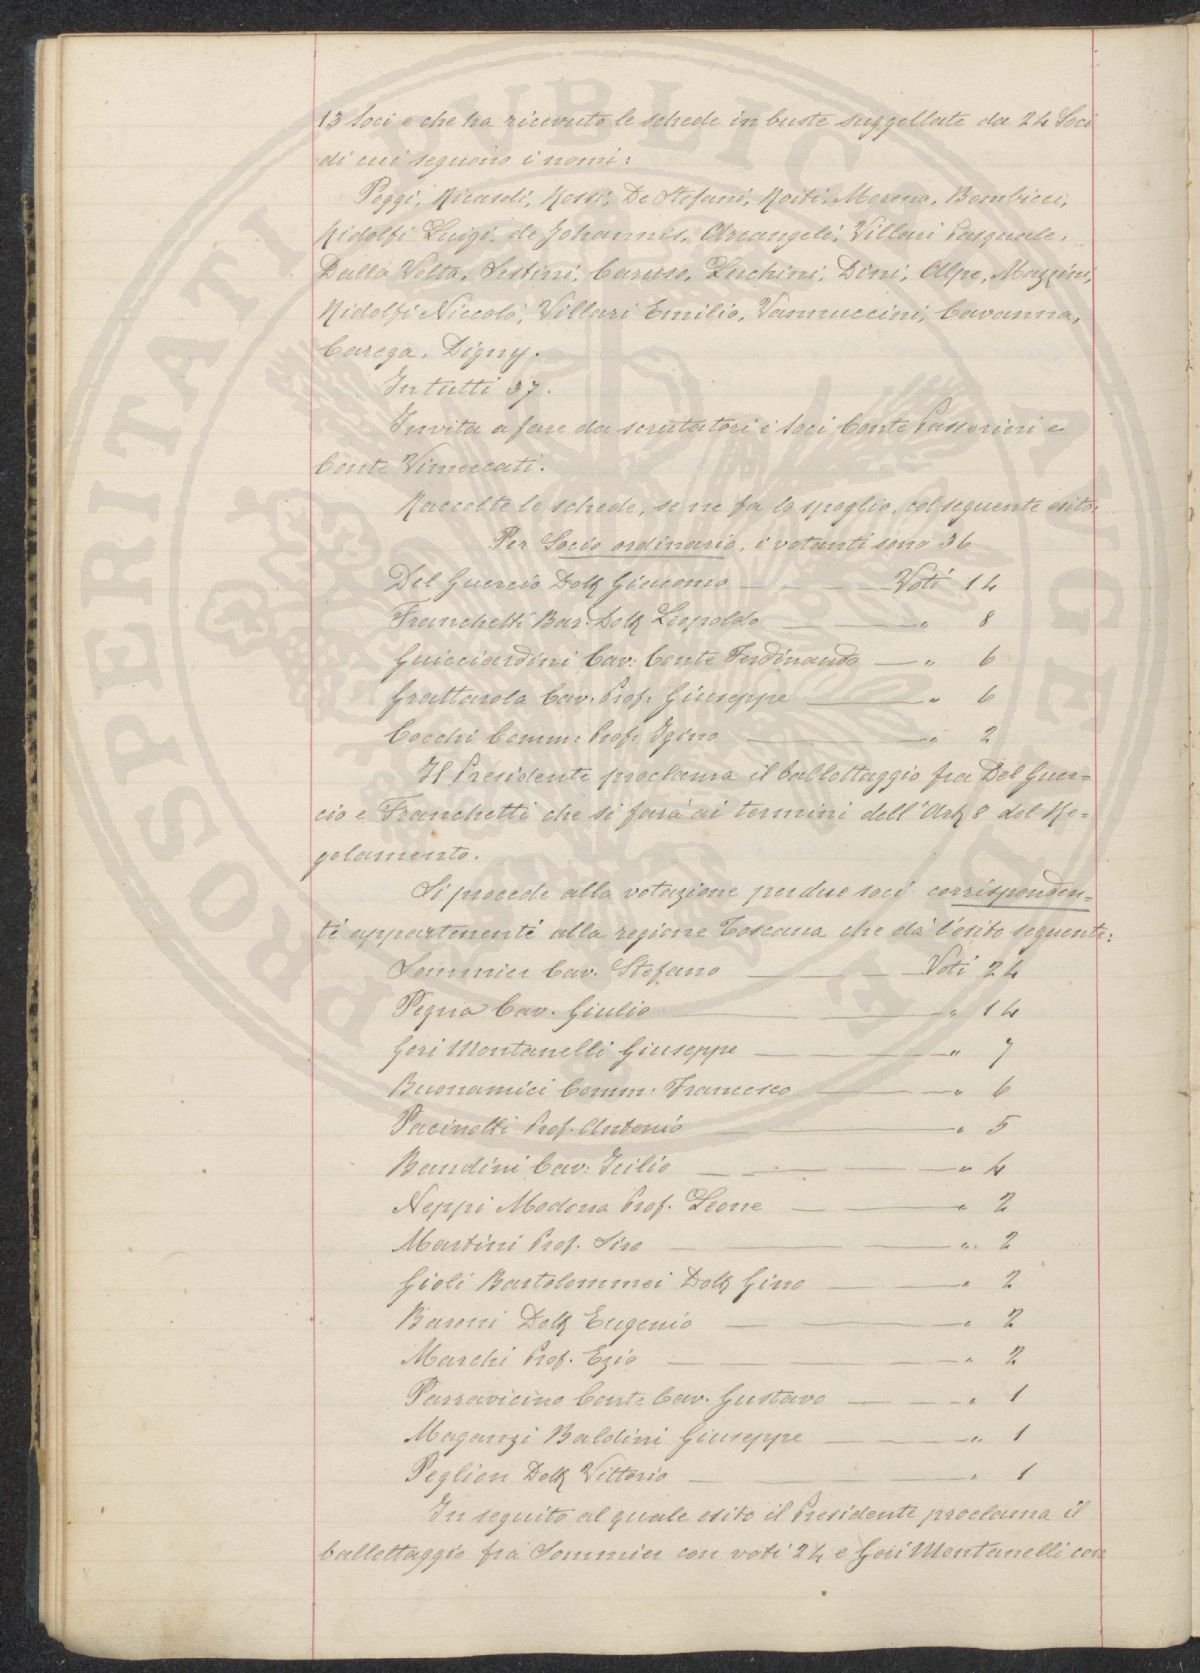 13 Soci e che ha ricevuto le schede in buste suggellate da 24 Soci
di cui seguono i nomi:
Poggi, Ricasoli, Rossi, De Stefani, Roiti, Morena, Bombicci,
Ridolfi Luigi, de Johannis, Arcangeli, Villari Pasquale,
Dalla Volta, Sestini, Caruso, Luchini, Dini, Alpe, Mazzini,
Ridolfi Niccolò, Villari Emilio, Vannuccini, Cavanna,
Carega, Digny.
In tutti 37.
Invita a fare da scrutatori i Soci Conte Passerini e
Conte Vimercati.
Raccolte le schede, se ne fa lo spoglio, col seguente esito:
Per Socio ordinario, i votanti sono 36
Del Guercio Dott Giacomo — Voti 14
Franchetti Bar. Dott Leopoldo — " 8
Guicciardini Cav: Conte Ferdinando — " 6
Grattarola Cav. Prof. Giuseppe — " 6
Cocchi Comm: Prof. Igino — " 2
Il Presidente proclama il ballottaggio fra Del Guer=
cio e Franchetti che si farà ai termini dell'Art 8 del Re=
golamento.
Si procede alla votazione per due soci corrisponden=
ti appartenenti alla regione Toscana che dà l'esito seguente:
Sommier Cav. Stefano — Voti 24
Pegna Cav. Giulio — " 14
Gori Montanelli Giuseppe — " 7
Buonamici Comm. Francesco — " 6
Pacinotti Prof. Antonio — " 5
Bandini Cav. Icilio — " 4
Neppi Modona Prof. Leone — " 2
Martini Prof. Siro — " 2
Gioli Bartolommei Dott Gino — " 2
Baroni Dott Eugenio — " 2
Marchi Prof. Ezio — " 2
Parravicino Conte Cav. Gustavo — " 1
Maganzi Baldini Giuseppe — " 1
Peglion Dott Vittorio — " 1
In seguito al quale esito il Presidente proclama il
ballottaggio fra Sommier con voti 24 e Gori Montanelli con
PROSPERITATI PUBLICAE AUGENDAE